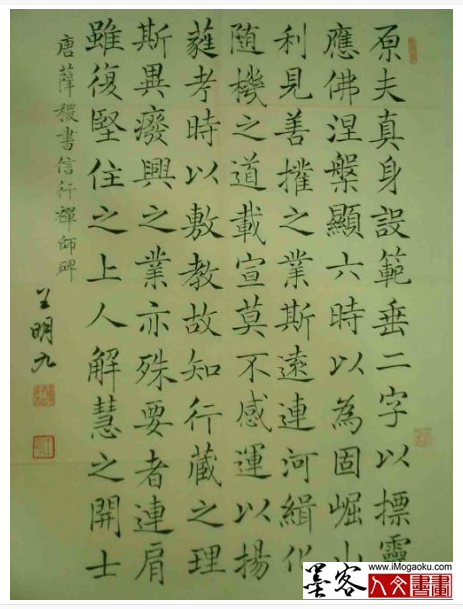 原夫真身設範垂二字以標靈
應佛涅槃顯六時以為固崛山
利見善攉之業斯遠連河緝化
随機之道載宣莫不感運以揚
蕤考時以敷教故知行藏之理
斯異癈興之業亦殊要者連肩
雖復堅住之上人解慧之開士
唐薛稷書信行禪師碑
王明九
www.iMogaoku.com
墨客人文書畫